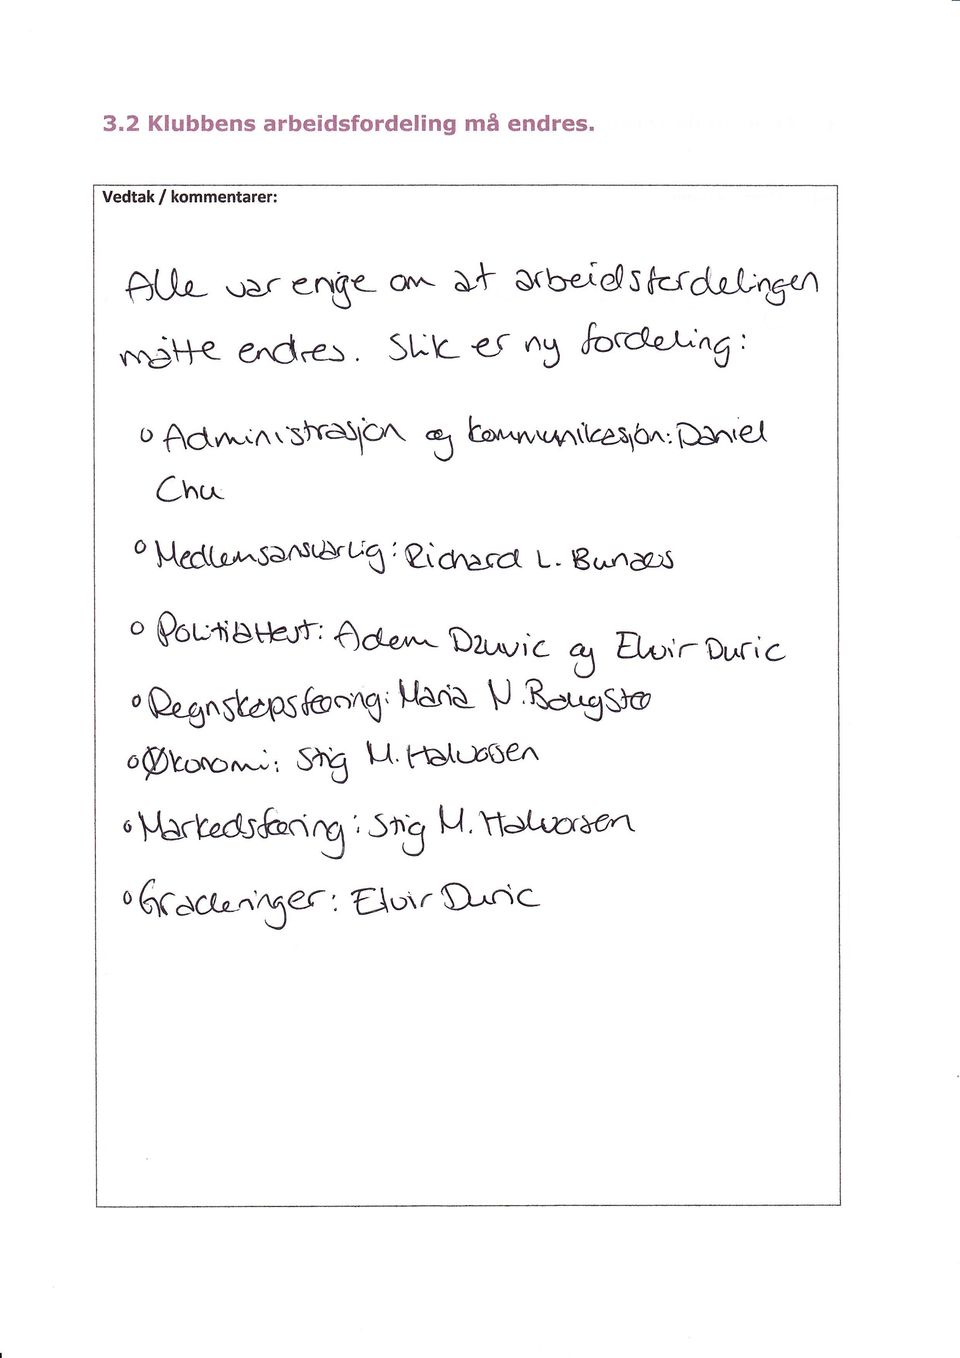 3.2 Klubbens arbeidsfordeling må endres.
Vedtak / kommentarer:
Alle var enige om at arbeidsfordelingen
måtte endres. Slik er ny fordeling:
o Administrasjon og kommunikasjon: Daniel
Chu
o Medlemsansvarlig: Richard L.
o Politiattest: Adem Dzuvic og Elvir Duric
o Regnskapsføring: Maria N.
o Økonomi: Stig M. Halvorsen
o Markedsføring: Stig M. Halvorsen
o Graderinger: Elvir Duric